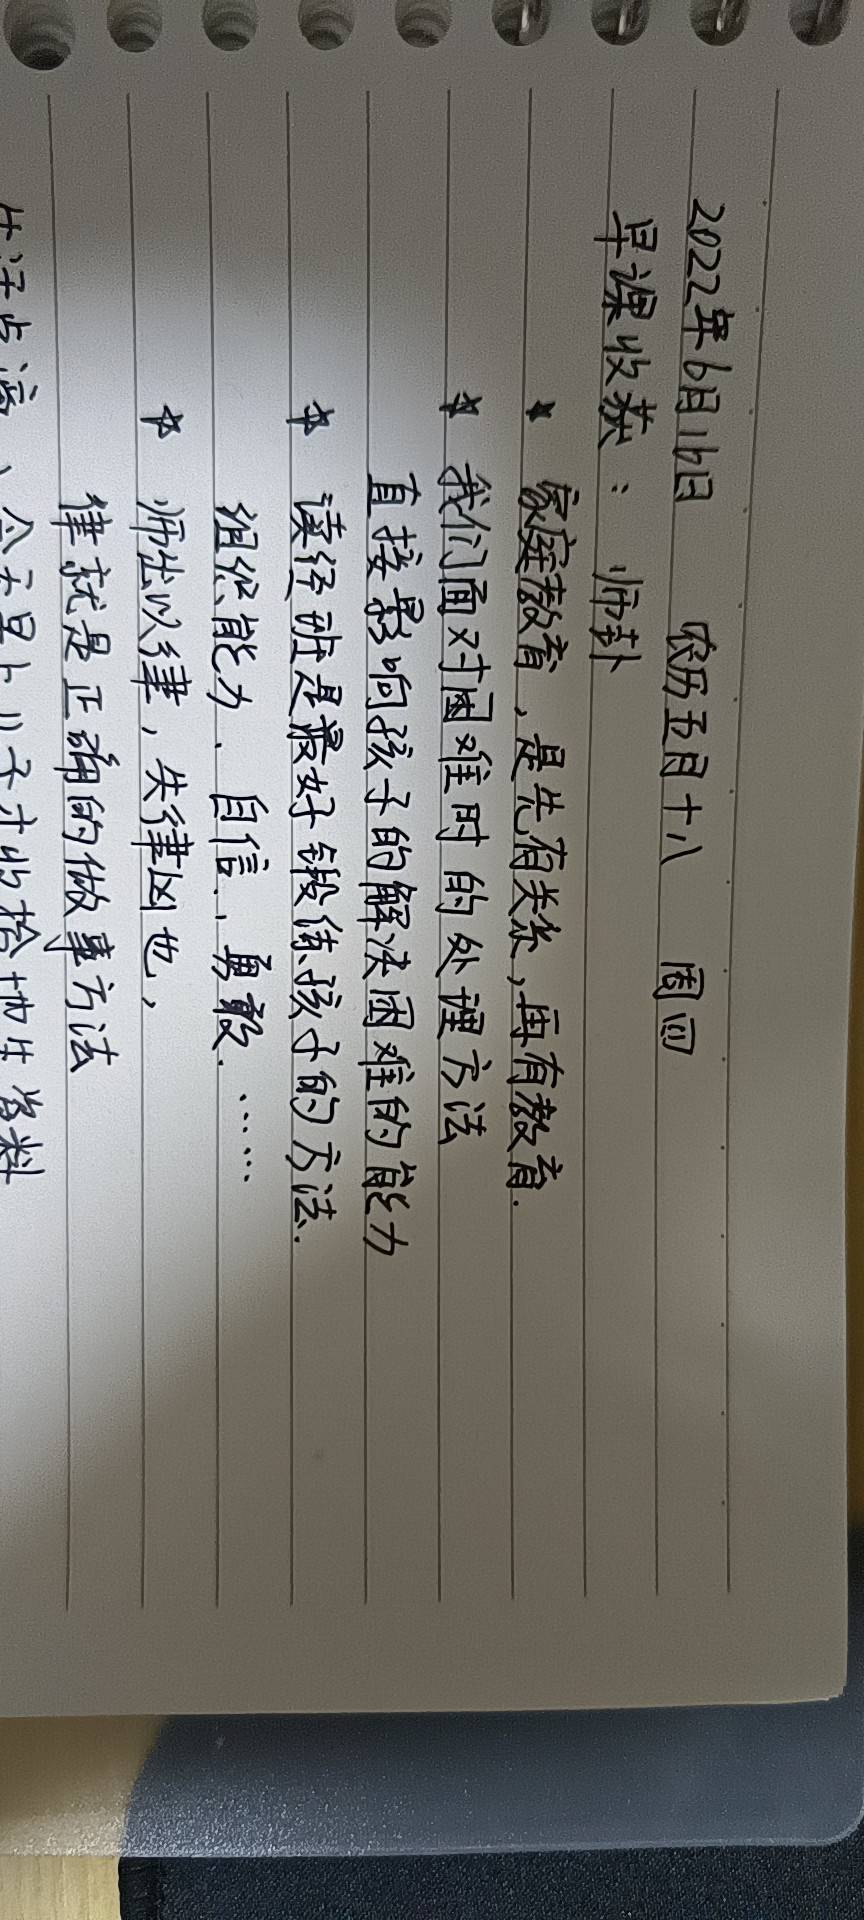 2022年6月16日 农历五月十八 周四
早课收获：师卦
★ 家庭教育，是先有关系，再有教育.
★ 我们面对困难时的处理方法
直接影响孩子的解决困难的能力
★ 读经班是最好锻练孩子的方法.
组织能力、自信、勇敢……
★ 师出以律，失律凶也，
律就是正确的做事方法
生活点滴、今天早上儿子才收拾地生资料